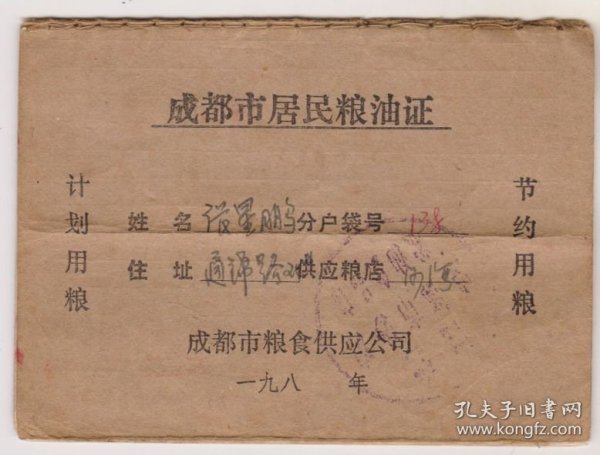 成都市居民粮油证
计划用粮
节约用粮
姓 名 张星鹏 分户袋号
住 址 通锦路 供应粮店
成都市粮食供应公司
一九八 年
孔夫子旧书网
www.kongfz.com